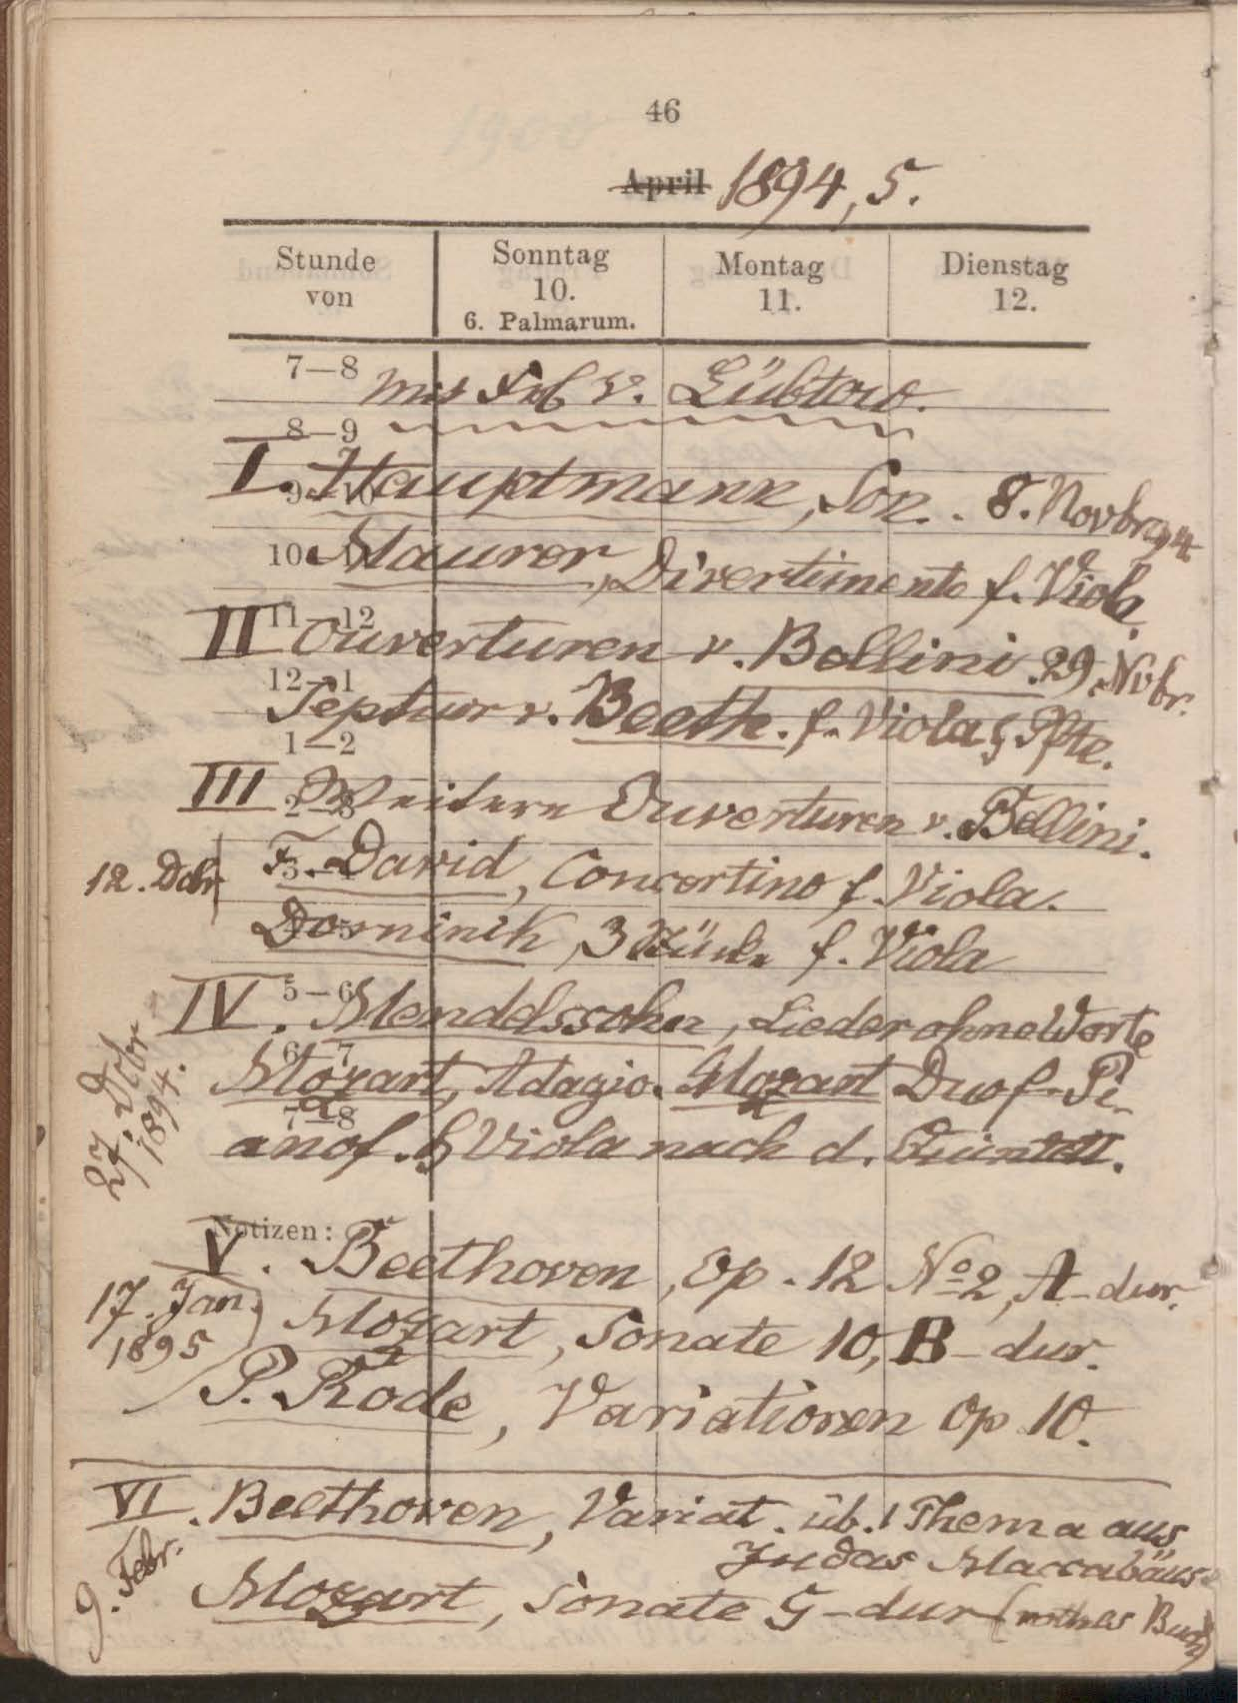 46
April 1894, 5.
Stunde von
Sonntag 10. 6. Palmarum.
Montag 11.
Dienstag 12.
7—8 mit Frl v. Lübtow.
8—9
I. Hauptmann, Son. 8. Novbr 94
9—10
10— Maurer, Divertimento f. Viola.
11—12
II Ouverturen v. Bellini. 29. Nvbr.
12—1
Septuor v. Beeth. f. Viola & Pfte.
1—2
III Weitere Ouverturen v. Bellini.
2—3
12. Dcbr F. David, Concertino f. Viola.
Dominik, 3 Stücke f. Viola
5—6
IV. Mendelssohn, Lieder ohne Worte
6—7
27. Dcbr 1894.
Mozart, Adagio. Mozart Duo f. Pi-
7—8
anof. & Viola nach d. Quintett.
Notizen:
V. Beethoven, Op. 12 No 2, A-dur.
17. Jan 1895
Mozart, Sonate 10, B-dur.
P. Rode, Variationen op 10.
VI. Beethoven, Variat. üb. 1 Thema aus
Judas Maccabäus
9. Febr.
Mozart, Sonate G-dur (rothes Buch)